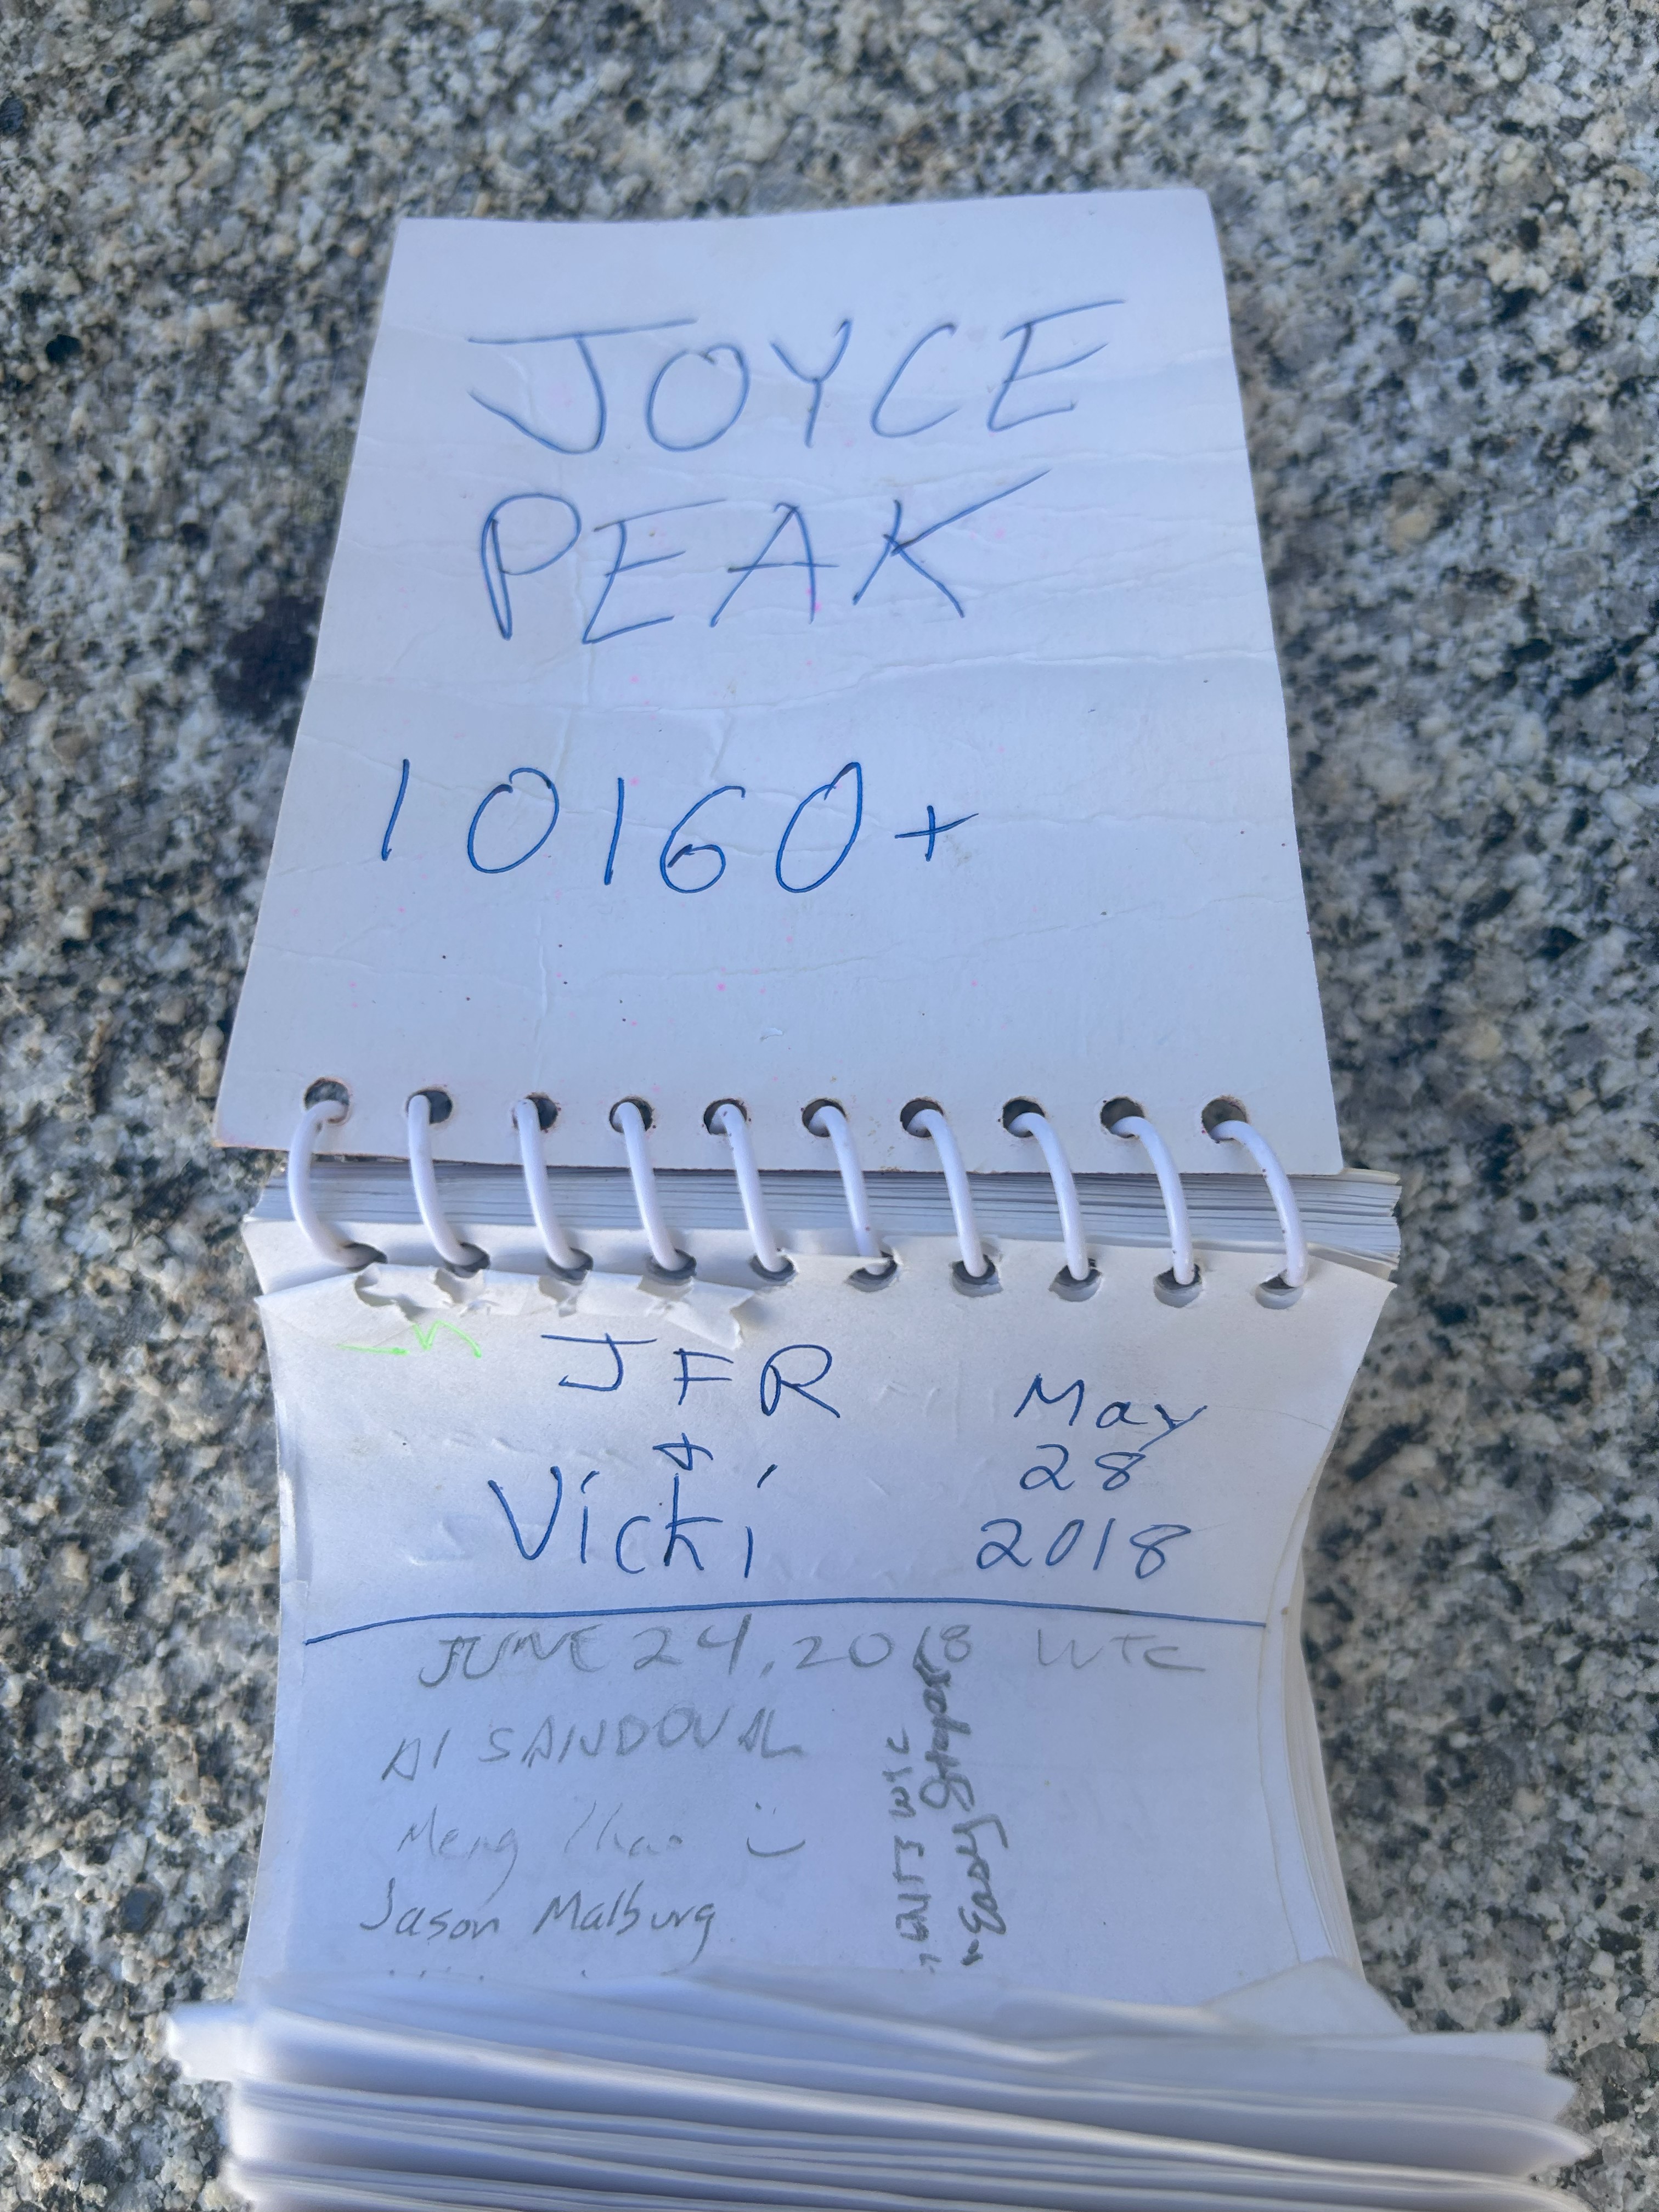 JOYCE
PEAK
10160+
JFR
+
Vicki
May
28
2018
JUNE 24, 2018 WTC
Al SANDOVAL
Meng
Jason Malburg
Easy